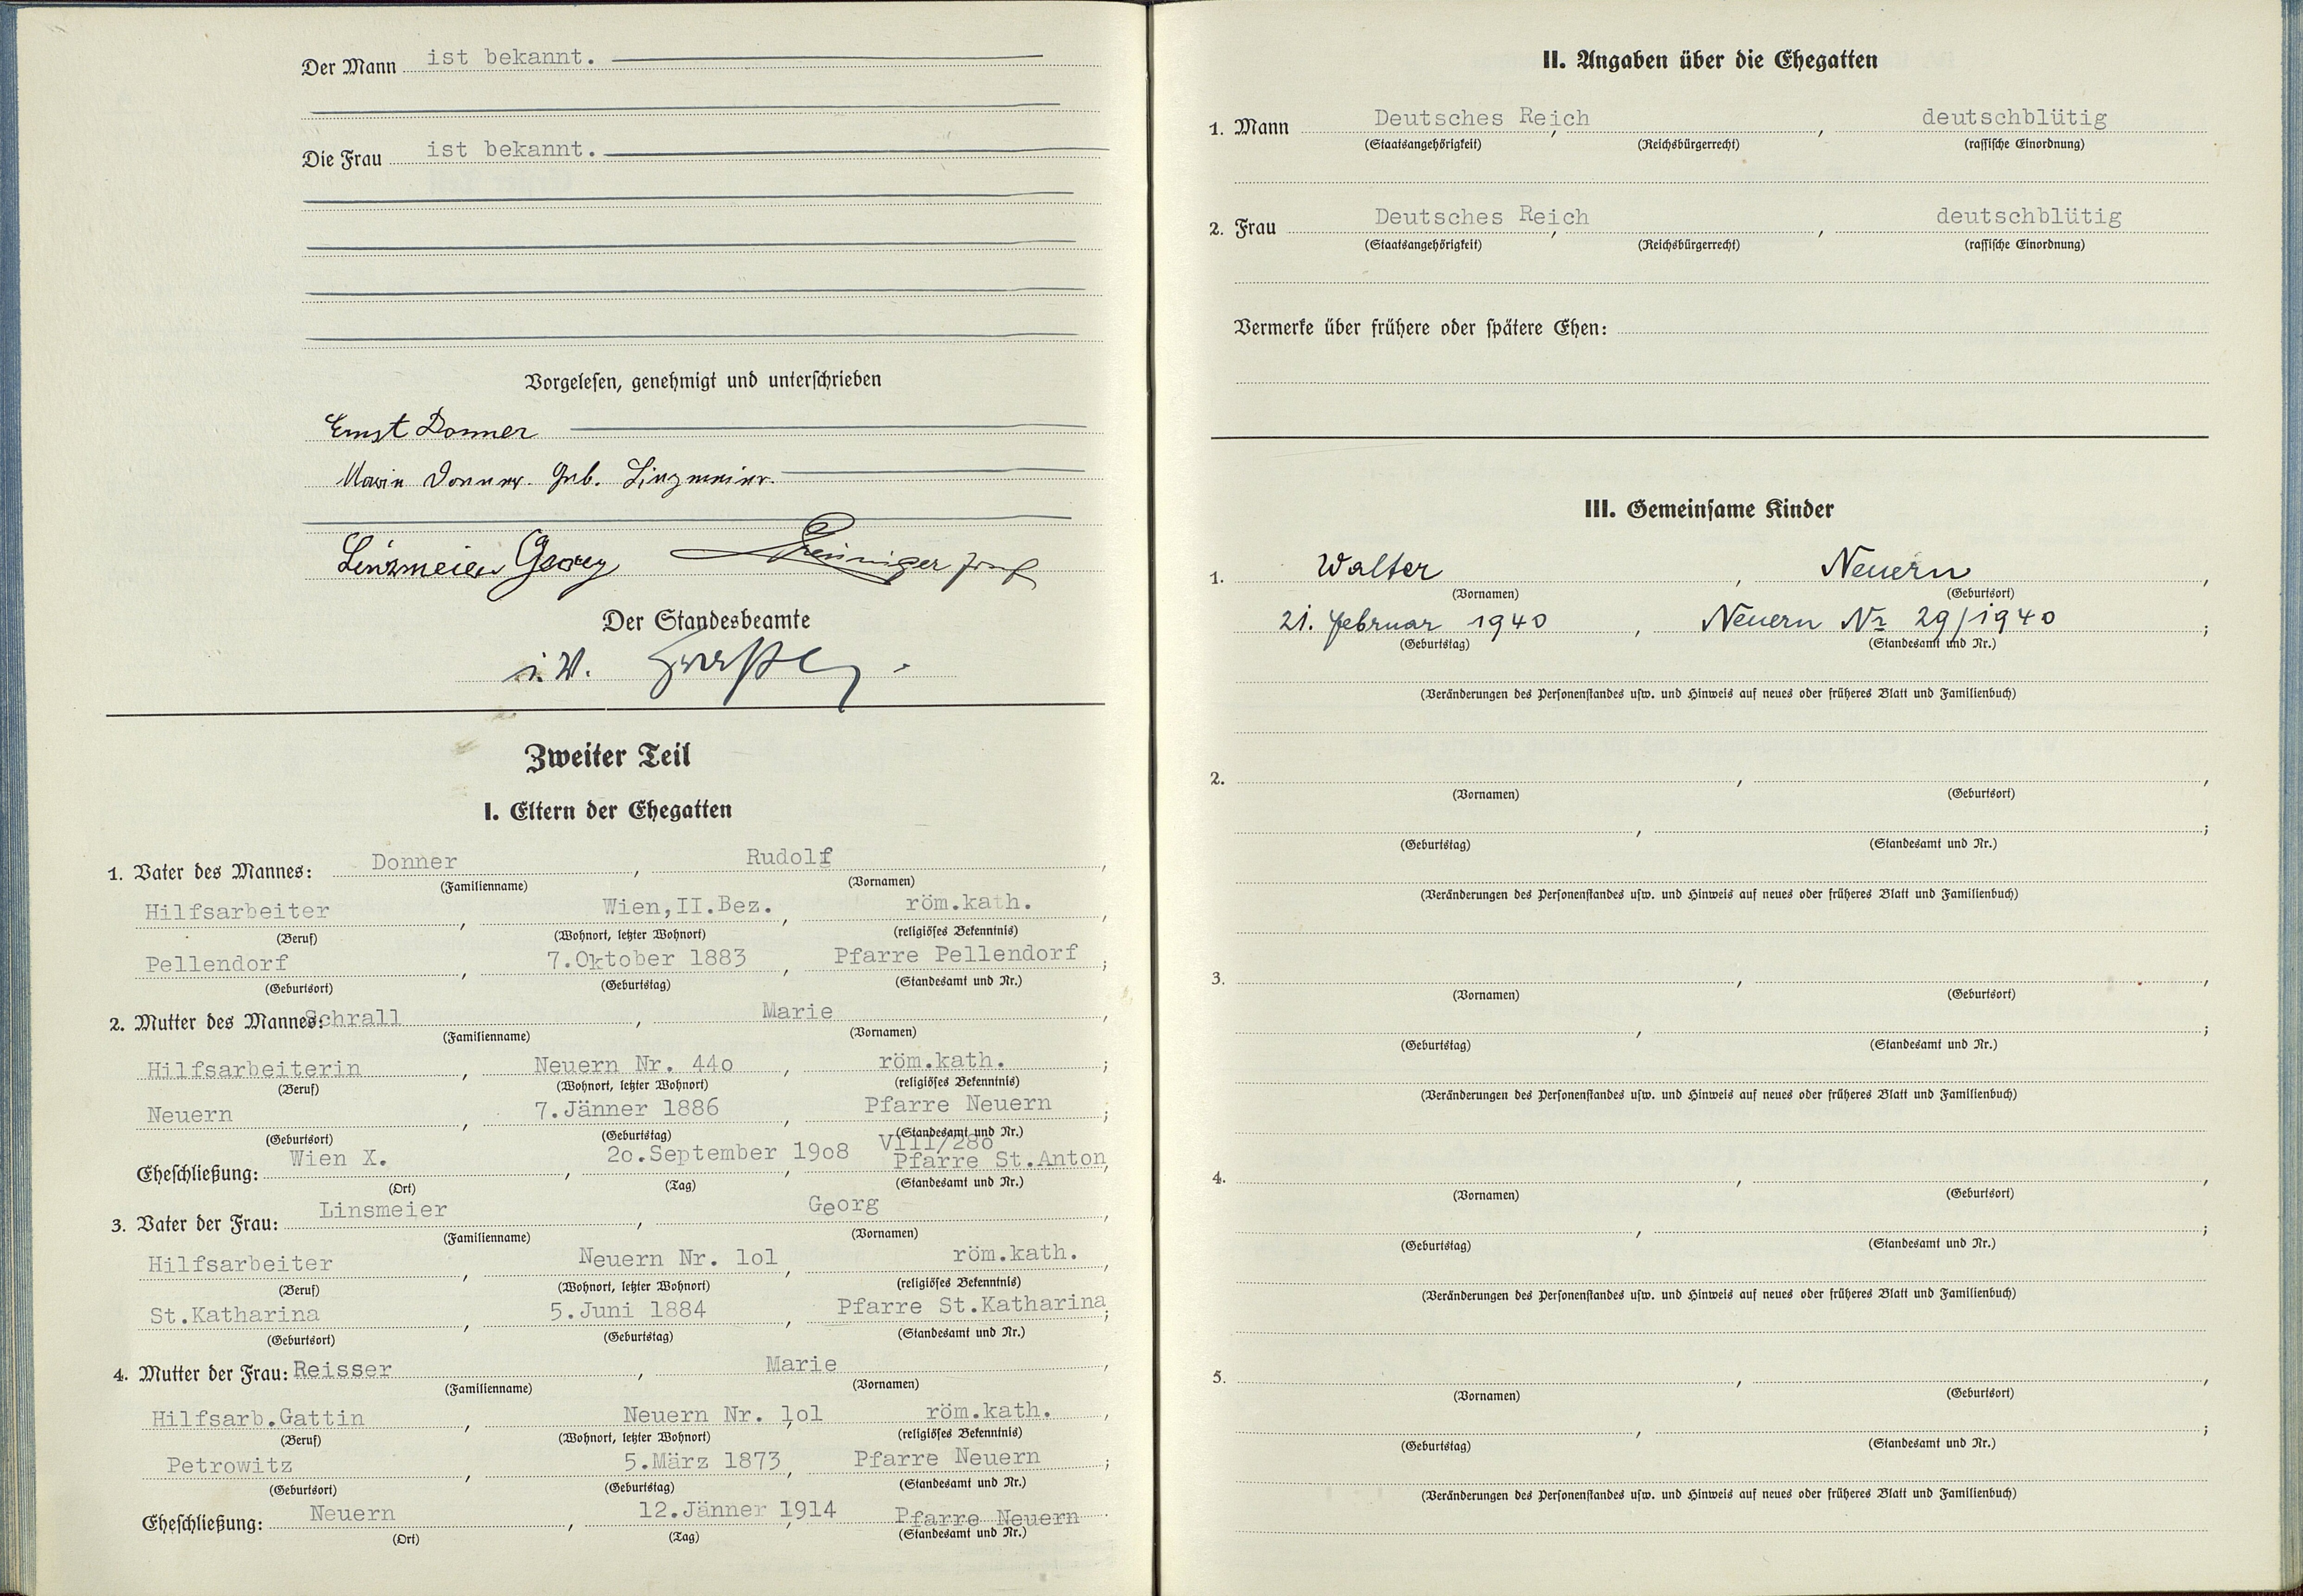 Der Mann ist bekannt.
Die Frau ist bekannt.
Vorgelesen, genehmigt und unterschrieben
Ernst Donner
Marie Donner geb. Linzmeier.
Linzmeier Georg
Der Standesbeamte
i. V.
Zweiter Teil
I. Eltern der Ehegatten
1. Vater des Mannes: Donner, Rudolf,
(Familienname) (Vornamen)
Hilfsarbeiter, Wien,II.Bez., röm.kath.,
(Beruf) (Wohnort, letzter Wohnort) (religiöses Bekenntnis)
Pellendorf, 7.Oktober 1883, Pfarre Pellendorf;
(Geburtsort) (Geburtstag) (Standesamt und Nr.)
2. Mutter des Mannes: Schrall, Marie,
(Familienname) (Vornamen)
Hilfsarbeiterin, Neuern Nr. 44o, röm.kath.;
(Beruf) (Wohnort, letzter Wohnort) (religiöses Bekenntnis)
Neuern, 7.Jänner 1886, Pfarre Neuern;
(Geburtsort) (Geburtstag) (Standesamt und Nr.)
VIII/28o
Eheschließung: Wien X., 2o.September 19o8, Pfarre St.Anton,
(Ort) (Tag) (Standesamt und Nr.)
3. Vater der Frau: Linsmeier, Georg,
(Familienname) (Vornamen)
Hilfsarbeiter, Neuern Nr. lol, röm.kath.,
(Beruf) (Wohnort, letzter Wohnort) (religiöses Bekenntnis)
St.Katharina, 5.Juni 1884, Pfarre St.Katharina;
(Geburtsort) (Geburtstag) (Standesamt und Nr.)
4. Mutter der Frau: Reisser, Marie,
(Familienname) (Vornamen)
Hilfsarb.Gattin, Neuern Nr. lol, röm.kath.,
(Beruf) (Wohnort, letzter Wohnort) (religiöses Bekenntnis)
Petrowitz, 5.März 1873, Pfarre Neuern;
(Geburtsort) (Geburtstag) (Standesamt und Nr.)
Eheschließung: Neuern, 12.Jänner 1914, Pfarre Neuern.
(Ort) (Tag) (Standesamt und Nr.)
II. Angaben über die Ehegatten
1. Mann Deutsches Reich, , deutschblütig
(Staatsangehörigkeit) (Reichsbürgerrecht) (rassische Einordnung)
2. Frau Deutsches Reich, , deutschblütig
(Staatsangehörigkeit) (Reichsbürgerrecht) (rassische Einordnung)
Vermerke über frühere oder spätere Ehen:
III. Gemeinsame Kinder
1. Walter, Neuern,
(Vornamen) (Geburtsort)
21. Februar 1940, Neuern Nr 29/1940;
(Geburtstag) (Standesamt und Nr.)
(Veränderungen des Personenstandes usw. und Hinweis auf neues oder früheres Blatt und Familienbuch)
2. , ,
(Vornamen) (Geburtsort)
, ;
(Geburtstag) (Standesamt und Nr.)
(Veränderungen des Personenstandes usw. und Hinweis auf neues oder früheres Blatt und Familienbuch)
3. , ,
(Vornamen) (Geburtsort)
, ;
(Geburtstag) (Standesamt und Nr.)
(Veränderungen des Personenstandes usw. und Hinweis auf neues oder früheres Blatt und Familienbuch)
4. , ,
(Vornamen) (Geburtsort)
, ;
(Geburtstag) (Standesamt und Nr.)
(Veränderungen des Personenstandes usw. und Hinweis auf neues oder früheres Blatt und Familienbuch)
5. , ,
(Vornamen) (Geburtsort)
, ;
(Geburtstag) (Standesamt und Nr.)
(Veränderungen des Personenstandes usw. und Hinweis auf neues oder früheres Blatt und Familienbuch)